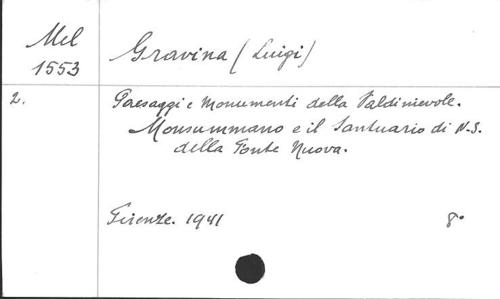 Mel
1553
Gravina (Luigi)
2.
Paesaggi e Monumenti della Valdinievole.
Monsummano e il Santuario di N.S.
della Fonte Nuova.
Firenze. 1941
8°